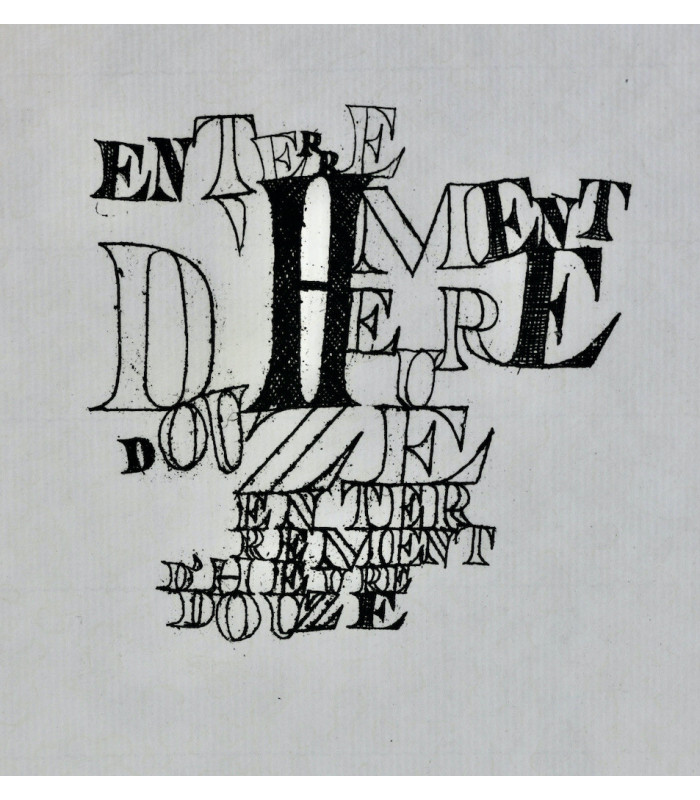 ENTERRE
MENT
D'HEURE
DOUZE
ENTER
REMENT
D'HEURE
DOUZE